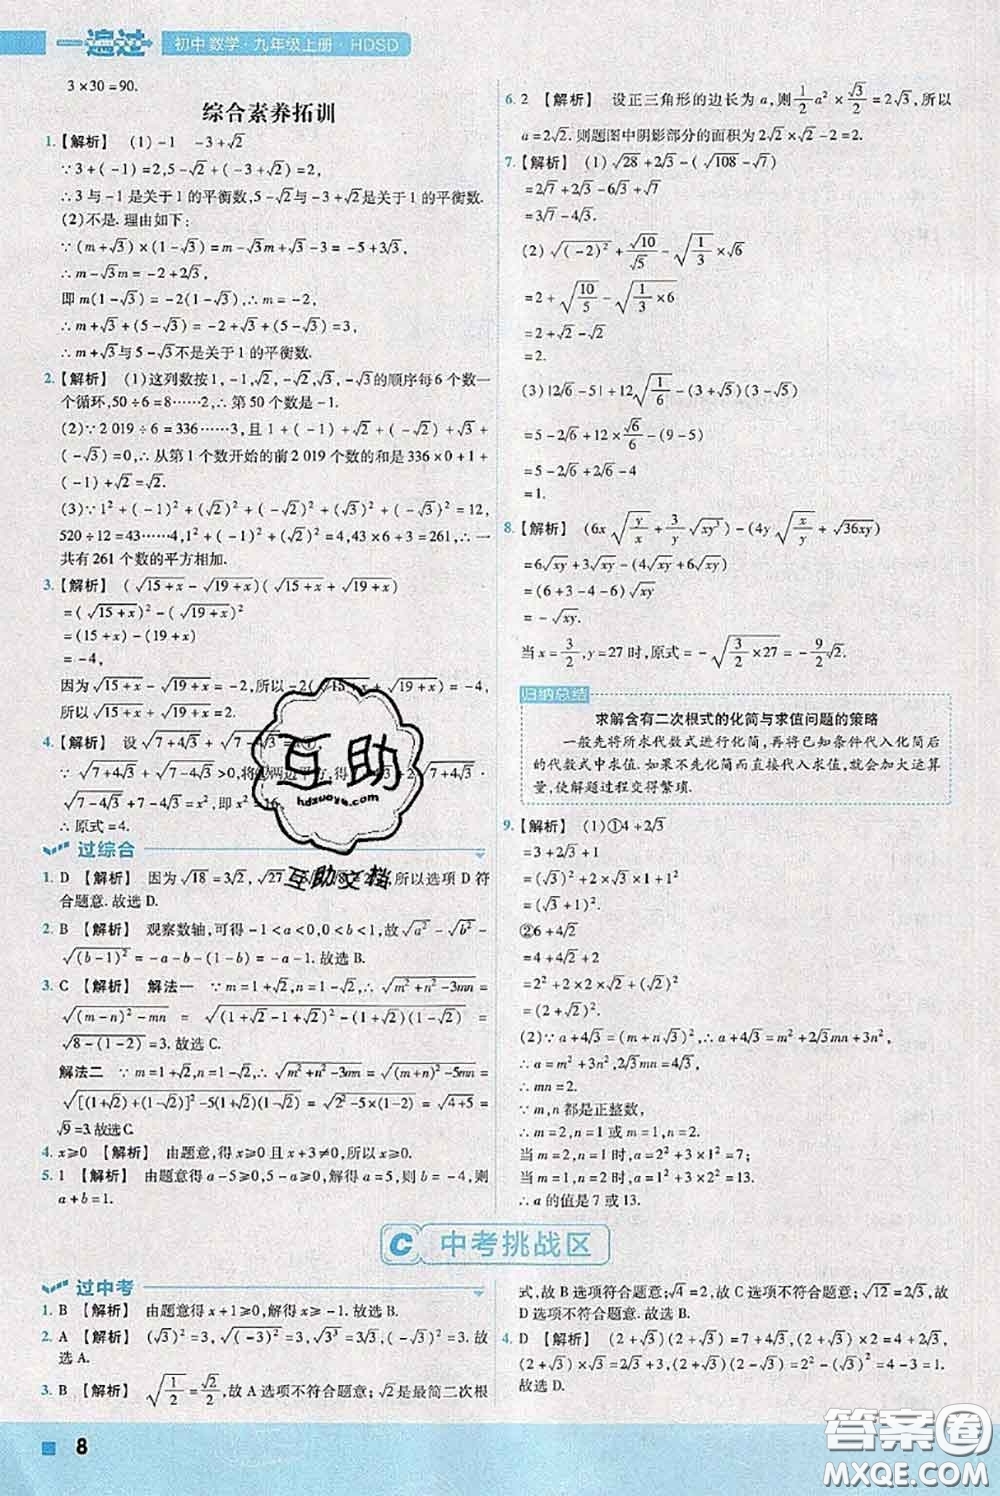 一遍过 初中 数学·九年级上册·HDSD
3×30=90.
综合素养拓训
1.【解析】 (1)-1 -3+√2
∵3+(-1)=2,5-√2+(-3+√2)=2,
∴3与-1是关于1的平衡数,5-√2与-3+√2是关于1的平衡数.
(2)不是. 理由如下:
∵(m+√3)×(1-√3)=m-√3m+√3-3=-5+3√3,
∴m-√3m=-2+2√3,
即m(1-√3)=-2(1-√3),∴m=-2,
∴m+√3+(5-√3)=-2+√3+(5-√3)=3,
∴m+√3与5-√3不是关于1的平衡数.
2.【解析】 (1)这列数按1,-1,√2,-√2,√3,-√3的顺序每6个数一
个循环,50÷6=8……2,∴第50个数是-1.
(2)∵2 019÷6=336……3,且1+(-1)+√2+(-√2)+√3+
(-√3)=0,∴从第1个数开始的前2 019个数的和是336×0+1+
(-1)+√2=√2.
(3)∵1²+(-1)²+(√2)²+(-√2)²+(√3)²+(-√3)²=12,
520÷12=43……4,1²+(-1)²+(√2)²=4,43×6+3=261,∴一
共有261个数的平方相加.
3.【解析】 (√(15+x)-√(19+x))(√(15+x)+√(19+x))
=(√(15+x))²-(√(19+x))²
=(15+x)-(19+x)
=-4,
因为√(15+x)-√(19+x)=-2,所以-2(√(15+x)+√(19+x))=-4,
所以√(15+x)+√(19+x)=2.
4.【解析】 设√(7+4√3)+√(7-4√3)=
∵√(7+4√3)+√(7-4√3)>0,将 两边平方,得 √(7+4√3)·
√(7-4√3)+7-4√3=x²,即x²=16,
∴原式=4.
过综合
1. D 【解析】 因为√18=3√2,√27 所以选项D符
合题意.故选D.
2. B 【解析】 观察数轴,可得-1<a<0,0<b<1,所以√a²-√b²-
√(b-1)²=-a-b-(1-b)=-a-1.故选B.
3. C 【解析】 解法一 ∵m=1+√2,n=1-√2,∴√(m²+n²-3mn)=
√((m-n)²-mn)=√((1+√2-1+√2)²-(1+√2)(1-√2))=
√(8-(1-2))=3.故选C.
解法二 ∵m=1+√2,n=1-√2,∴√(m²+n²-3mn)=√((m+n)²-5mn)=
√([(1+√2)+(1-√2)]²-5(1+√2)(1-√2))=√(2²-5×(1-2))=√(4+5)=
√9=3.故选C.
4. x≥0 【解析】 由题意,得x≥0且x+3≠0,所以x≥0.
5. 1 【解析】 由题意得a-5≥0,5-a≥0,解得a=5,则b=-4,则
a+b=1.
6. 2 【解析】 设正三角形的边长为a,则1/2 a²×√3/2=2√3,所以
a=2√2.则题图中阴影部分的面积为2√2×√2-2√3... 
7.【解析】 (1)√28+2√3-(√108-√7)
=2√7+2√3-6√3+√7
=3√7-4√3.
(2)√(-2)²+√10/√5-√(1/3)×√6
=2+√(10/5)-√(1/3×6)
=2+√2-√2
=2.
(3)|2√6-5|+12√(1/6)-(3+√5)(3-√5)
=5-2√6+12×√6/6-(9-5)
=5-2√6+2√6-4
=1.
8.【解析】 (6x√(y/x)+3/y√(xy³))-(4y√(x/y)+√(36xy))
=6√xy+3√xy-(4√xy+6√xy)
=(6+3-4-6)√xy
=-√xy.
当x=3/2,y=27时,原式=-√(3/2×27)=-9/2√2.
归纳总结
求解含有二次根式的化简与求值问题的策略
一般先将所求代数式进行化简,再将已知条件代入化简后
的代数式中求值.如果不先化简而直接代入求值,就会加大运算
量,使解题过程变得繁琐.
9.【解析】 (1)①4+2√3
=3+2√3+1
=(√3)²+2×√3×1+1²
=(√3+1)².
②6+4√2
=4+4√2+2
=2²+2×2×√2+(√2)²
=(2+√2)².
(2)∵a+4√3=(m+n√3)²,∴a+4√3=m²+2√3mn+3n²,
∴a=m²+3n²,2√3mn=4√3,
∴mn=2.
∵m,n都是正整数,
∴m=1,n=2或m=2,n=1.
当m=1,n=2时,a=m²+3n²=1²+3×2²=13;
当m=2,n=1时,a=m²+3n²=2²+3×1²=7.
∴a的值是7或13.
C 中考挑战区
过中考
1. B 【解析】 由题意得x+1≥0,解得x≥-1.故选B.
2. A 【解析】 (√3)²=3,√(-3)²=3,√3³=3√3,(-√3)²=3.故
选A.
3. B 【解析】 √(1/2)=√2/2,故A选项不符合题意;√2是最简二次根
式,故B选项符合题意;√4=2,故C选项不符合题意;√12=2√3,故
D选项不符合题意.故选B.
4. D 【解析】 (2+√3)(2+√3)=7+4√3,
(2+√3)(2-√3)=2²-(√3)²=1.
故选D.
8
互助
hdzuoye.com
互助文档
答案圈
MXQE.COM